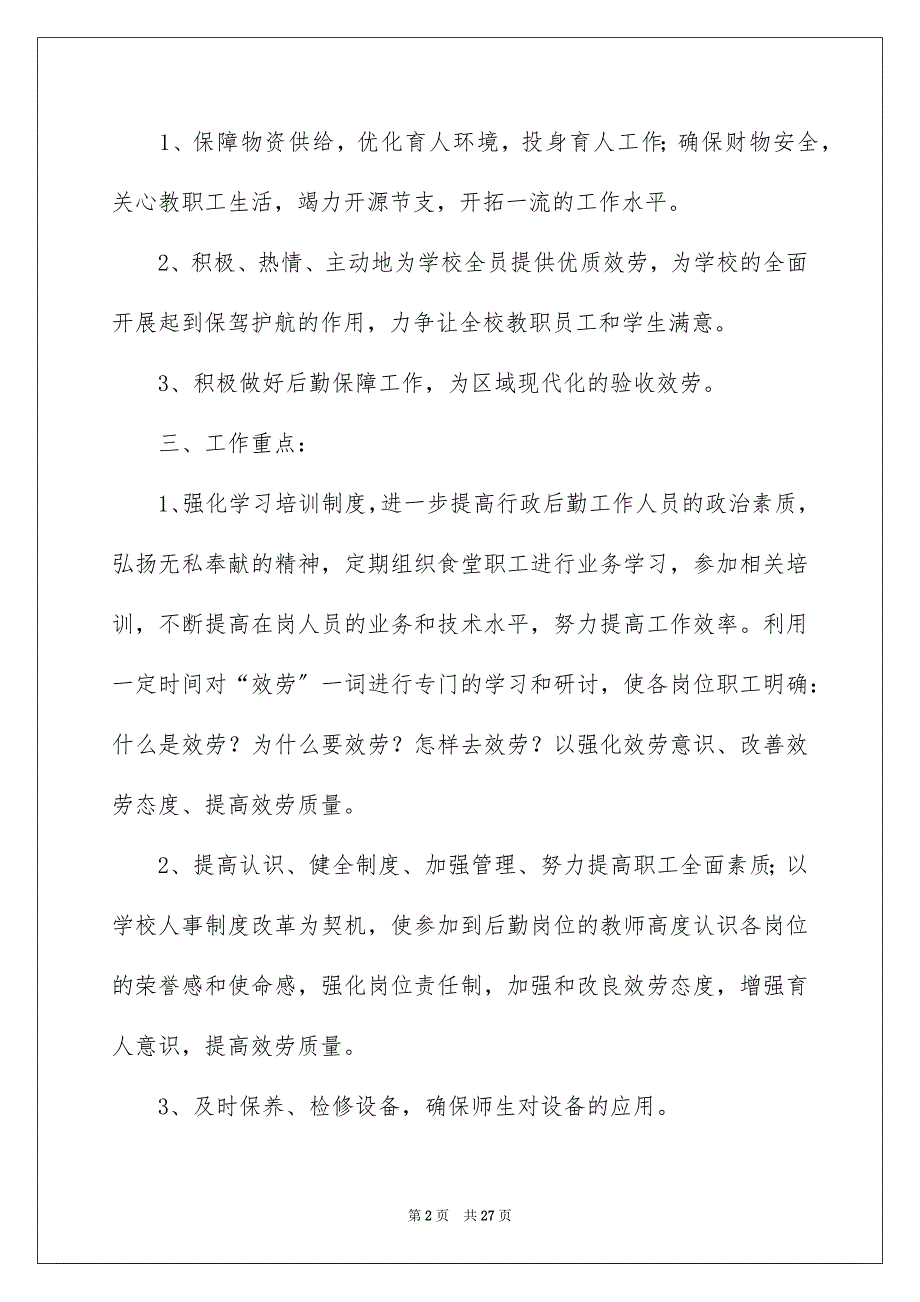 1、保障物资供给，优化育人环境，投身育人工作；确保财物安全，
关心教职工生活，竭力开源节支，开拓一流的工作水平。
2、积极、热情、主动地为学校全员提供优质效劳，为学校的全面
开展起到保驾护航的作用，力争让全校教职员工和学生满意。
3、积极做好后勤保障工作，为区域现代化的验收效劳。
三、工作重点：
1、强化学习培训制度，进一步提高行政后勤工作人员的政治素质，
弘扬无私奉献的精神，定期组织食堂职工进行业务学习，参加相关培
训，不断提高在岗人员的业务和技术水平，努力提高工作效率。利用
一定时间对“效劳〞一词进行专门的学习和研讨，使各岗位职工明确：
什么是效劳？为什么要效劳？怎样去效劳？以强化效劳意识、改善效
劳态度、提高效劳质量。
2、提高认识、健全制度、加强管理、努力提高职工全面素质；以
学校人事制度改革为契机，使参加到后勤岗位的教师高度认识各岗位
的荣誉感和使命感，强化岗位责任制，加强和改良效劳态度，增强育
人意识，提高效劳质量。
3、及时保养、检修设备，确保师生对设备的应用。
第 2 页 共 27 页